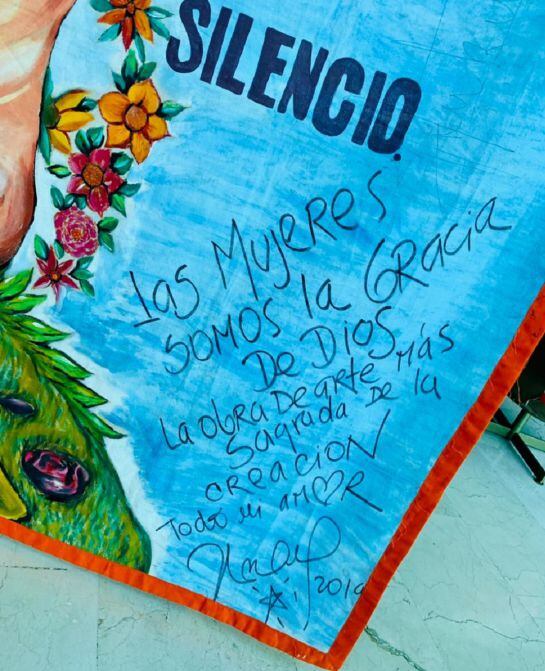 SILENCIO.
Las Mujeres
SOMOS la GRacia
De DIOS
La OBRA De aRte Más
Sagrada De la
CReaCION
Todo mi aMOR
2019